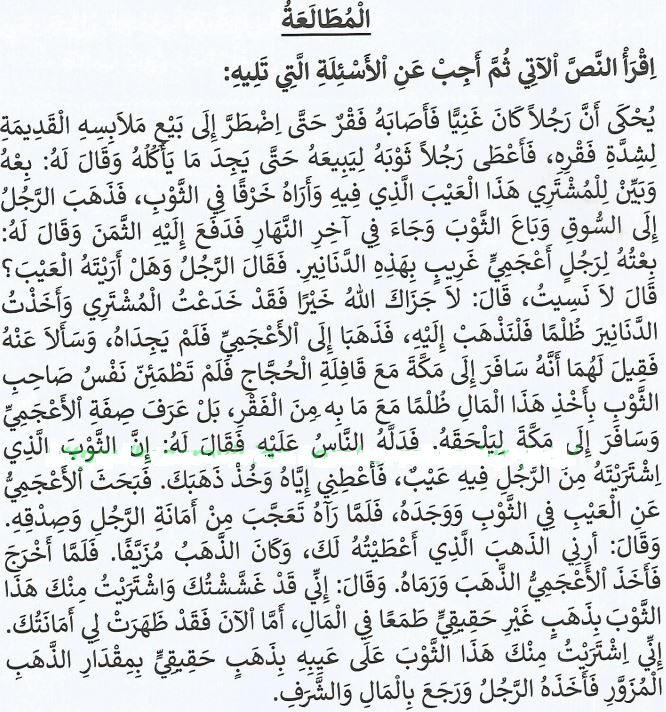 الْمُطَالَعَةُ
اِقْرَأْ النَّصَّ الْآتِي ثُمَّ أَجِبْ عَنِ الْأَسْئِلَةِ الَّتِي تَلِيهِ:
يُحْكَى أَنَّ رَجُلاً كَانَ غَنِيًّا فَأَصَابَهُ فَقْرٌ حَتَّى اِضْطَرَّ إِلَى بَيْعِ مَلَابِسِهِ الْقَدِيمَةِ
لِشِدَّةِ فَقْرِهِ، فَأَعْطَى رَجُلاً ثَوْبَهُ لِيَبِيعَهُ حَتَّى يَجِدَ مَا يَأْكُلُهُ وَقَالَ لَهُ: بِعْهُ
وَبَيِّنْ لِلْمُشْتَرِي هَذَا الْعَيْبَ الَّذِي فِيهِ وَأَرَاهُ خَرْقًا فِي الثَّوْبِ، فَذَهَبَ الرَّجُلُ
إِلَى السُّوقِ وَبَاعَ الثَّوْبَ وَجَاءَ فِي آخِرِ النَّهَارِ فَدَفَعَ إِلَيْهِ الثَّمَنَ وَقَالَ لَهُ:
بِعْتُهُ لِرَجُلٍ أَعْجَمِيٍّ غَرِيبٍ بِهَذِهِ الدَّنَانِيرِ. فَقَالَ الرَّجُلُ وَهَلْ أَرَيْتَهُ الْعَيْبَ؟
قَالَ لَا نَسِيتُ، قَالَ: لَا جَزَاكَ اللهُ خَيْرًا فَقَدْ خَدَعْتُ الْمُشْتَرِي وَأَخَذْتُ
الدَّنَانِيرَ ظُلْمًا فَلْنَذْهَبْ إِلَيْهِ، فَذَهَبَا إِلَى الْأَعْجَمِيِّ فَلَمْ يَجِدَاهُ، وَسَأَلَا عَنْهُ
فَقِيلَ لَهُمَا أَنَّهُ سَافَرَ إِلَى مَكَّةَ مَعَ قَافِلَةِ الْحُجَّاجِ فَلَمْ تَطْمَئِنّ نَفْسُ صَاحِبِ
الثَّوْبِ بِأَخْذِ هَذَا الْمَالِ ظُلْمًا مَعَ مَا بِهِ مِنَ الْفَقْرِ، بَلْ عَرَفَ صِفَةِ الْأَعْجَمِيِّ
وَسَافَرَ إِلَى مَكَّةَ لِيَلْحَقَهُ. فَدَلَّهُ النَّاسُ عَلَيْهِ فَقَالَ لَهُ: إِنَّ الثَّوْبَ الَّذِي
اِشْتَرَيْتَهُ مِنَ الرَّجُلِ فِيهِ عَيْبٌ، فَأَعْطِنِي إِيَّاهُ وَخُذْ ذَهَبَكَ. فَبَحَثَ الْأَعْجَمِيُّ
عَنِ الْعَيْبِ فِي الثَّوْبِ وَوَجَدَهُ، فَلَمَّا رَآهُ تَعَجَّبَ مِنْ أَمَانَةِ الرَّجُلِ وَصِدْقِهِ.
وَقَالَ: أَرِنِي الذَّهبَ الَّذِي أَعْطَيْتُهُ لَكَ، وَكَانَ الذَّهَبُ مُزَيَّفًا. فَلَمَّا أَخْرَجَ
فَأَخَذَ الْأَعْجَمِيُّ الذَّهَبَ وَرَمَاهُ. وَقَالَ: إِنِّي قَدْ غَشَشْتُكَ وَاشْتَرَيْتُ مِنْكَ هَذَا
الثَّوْبَ بِذَهَبٍ غَيْرِ حَقِيقِيٍّ طَمَعًا فِي الْمَالِ، أَمَّا الْآنَ فَقَدْ ظَهَرَتْ لِي أَمَانَتُكَ.
إِنِّي اِشْتَرَيْتُ مِنْكَ هَذَا الثَّوْبَ عَلَى عَيِبِهِ بِذَهَبٍ حَقِيقِيٍّ بِمِقْدَارِ الذَّهَبِ
الْمُزَوَّرِ فَأَخَذَهُ الرَّجُلُ وَرَجَعَ بِالْمَالِ وَالشَّرَفِ.